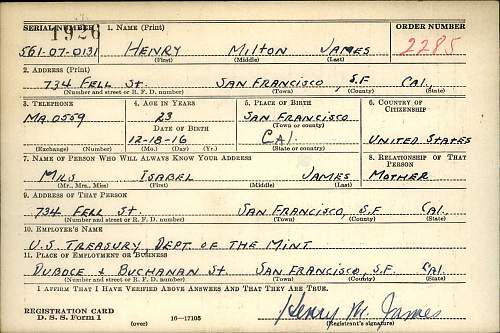 SERIAL NUMBER 1. NAME (Print) ORDER NUMBER
1926
561-07-0131 HENRY MILTON JAMES 2285
(First) (Middle) (Last)
2. ADDRESS (Print)
734 FELL ST. SAN FRANCISCO, S.F CAL.
(Number and street or R. F. D. number) (Town) (County) (State)
3. TELEPHONE 4. AGE IN YEARS 5. PLACE OF BIRTH 6. COUNTRY OF CITIZENSHIP
MA.0559 23 SAN FRANCISCO
DATE OF BIRTH (Town or county)
12-18-16 CAL. UNITED STATES
(Exchange) (Number) (Mo.) (Day) (Yr.) (State or country)
7. NAME OF PERSON WHO WILL ALWAYS KNOW YOUR ADDRESS 8. RELATIONSHIP OF THAT PERSON
MRS ISABEL JAMES MOTHER
(Mr., Mrs., Miss) (First) (Middle) (Last)
9. ADDRESS OF THAT PERSON
734 FELL ST. SAN FRANCISCO, S.F CAL.
(Number and street or R. F. D. number) (Town) (County) (State)
10. EMPLOYER'S NAME
U.S. TREASURY, DEPT. OF THE MINT
11. PLACE OF EMPLOYMENT OR BUSINESS
DUBOCE & BUCHANAN ST. SAN FRANCISCO, S.F. CAL.
(Number and street or R. F. D. number) (Town) (County) (State)
I AFFIRM THAT I HAVE VERIFIED ABOVE ANSWERS AND THAT THEY ARE TRUE.
REGISTRATION CARD
D. S. S. Form 1 16—17105 Henry M. James
(over) (Registrant's signature)